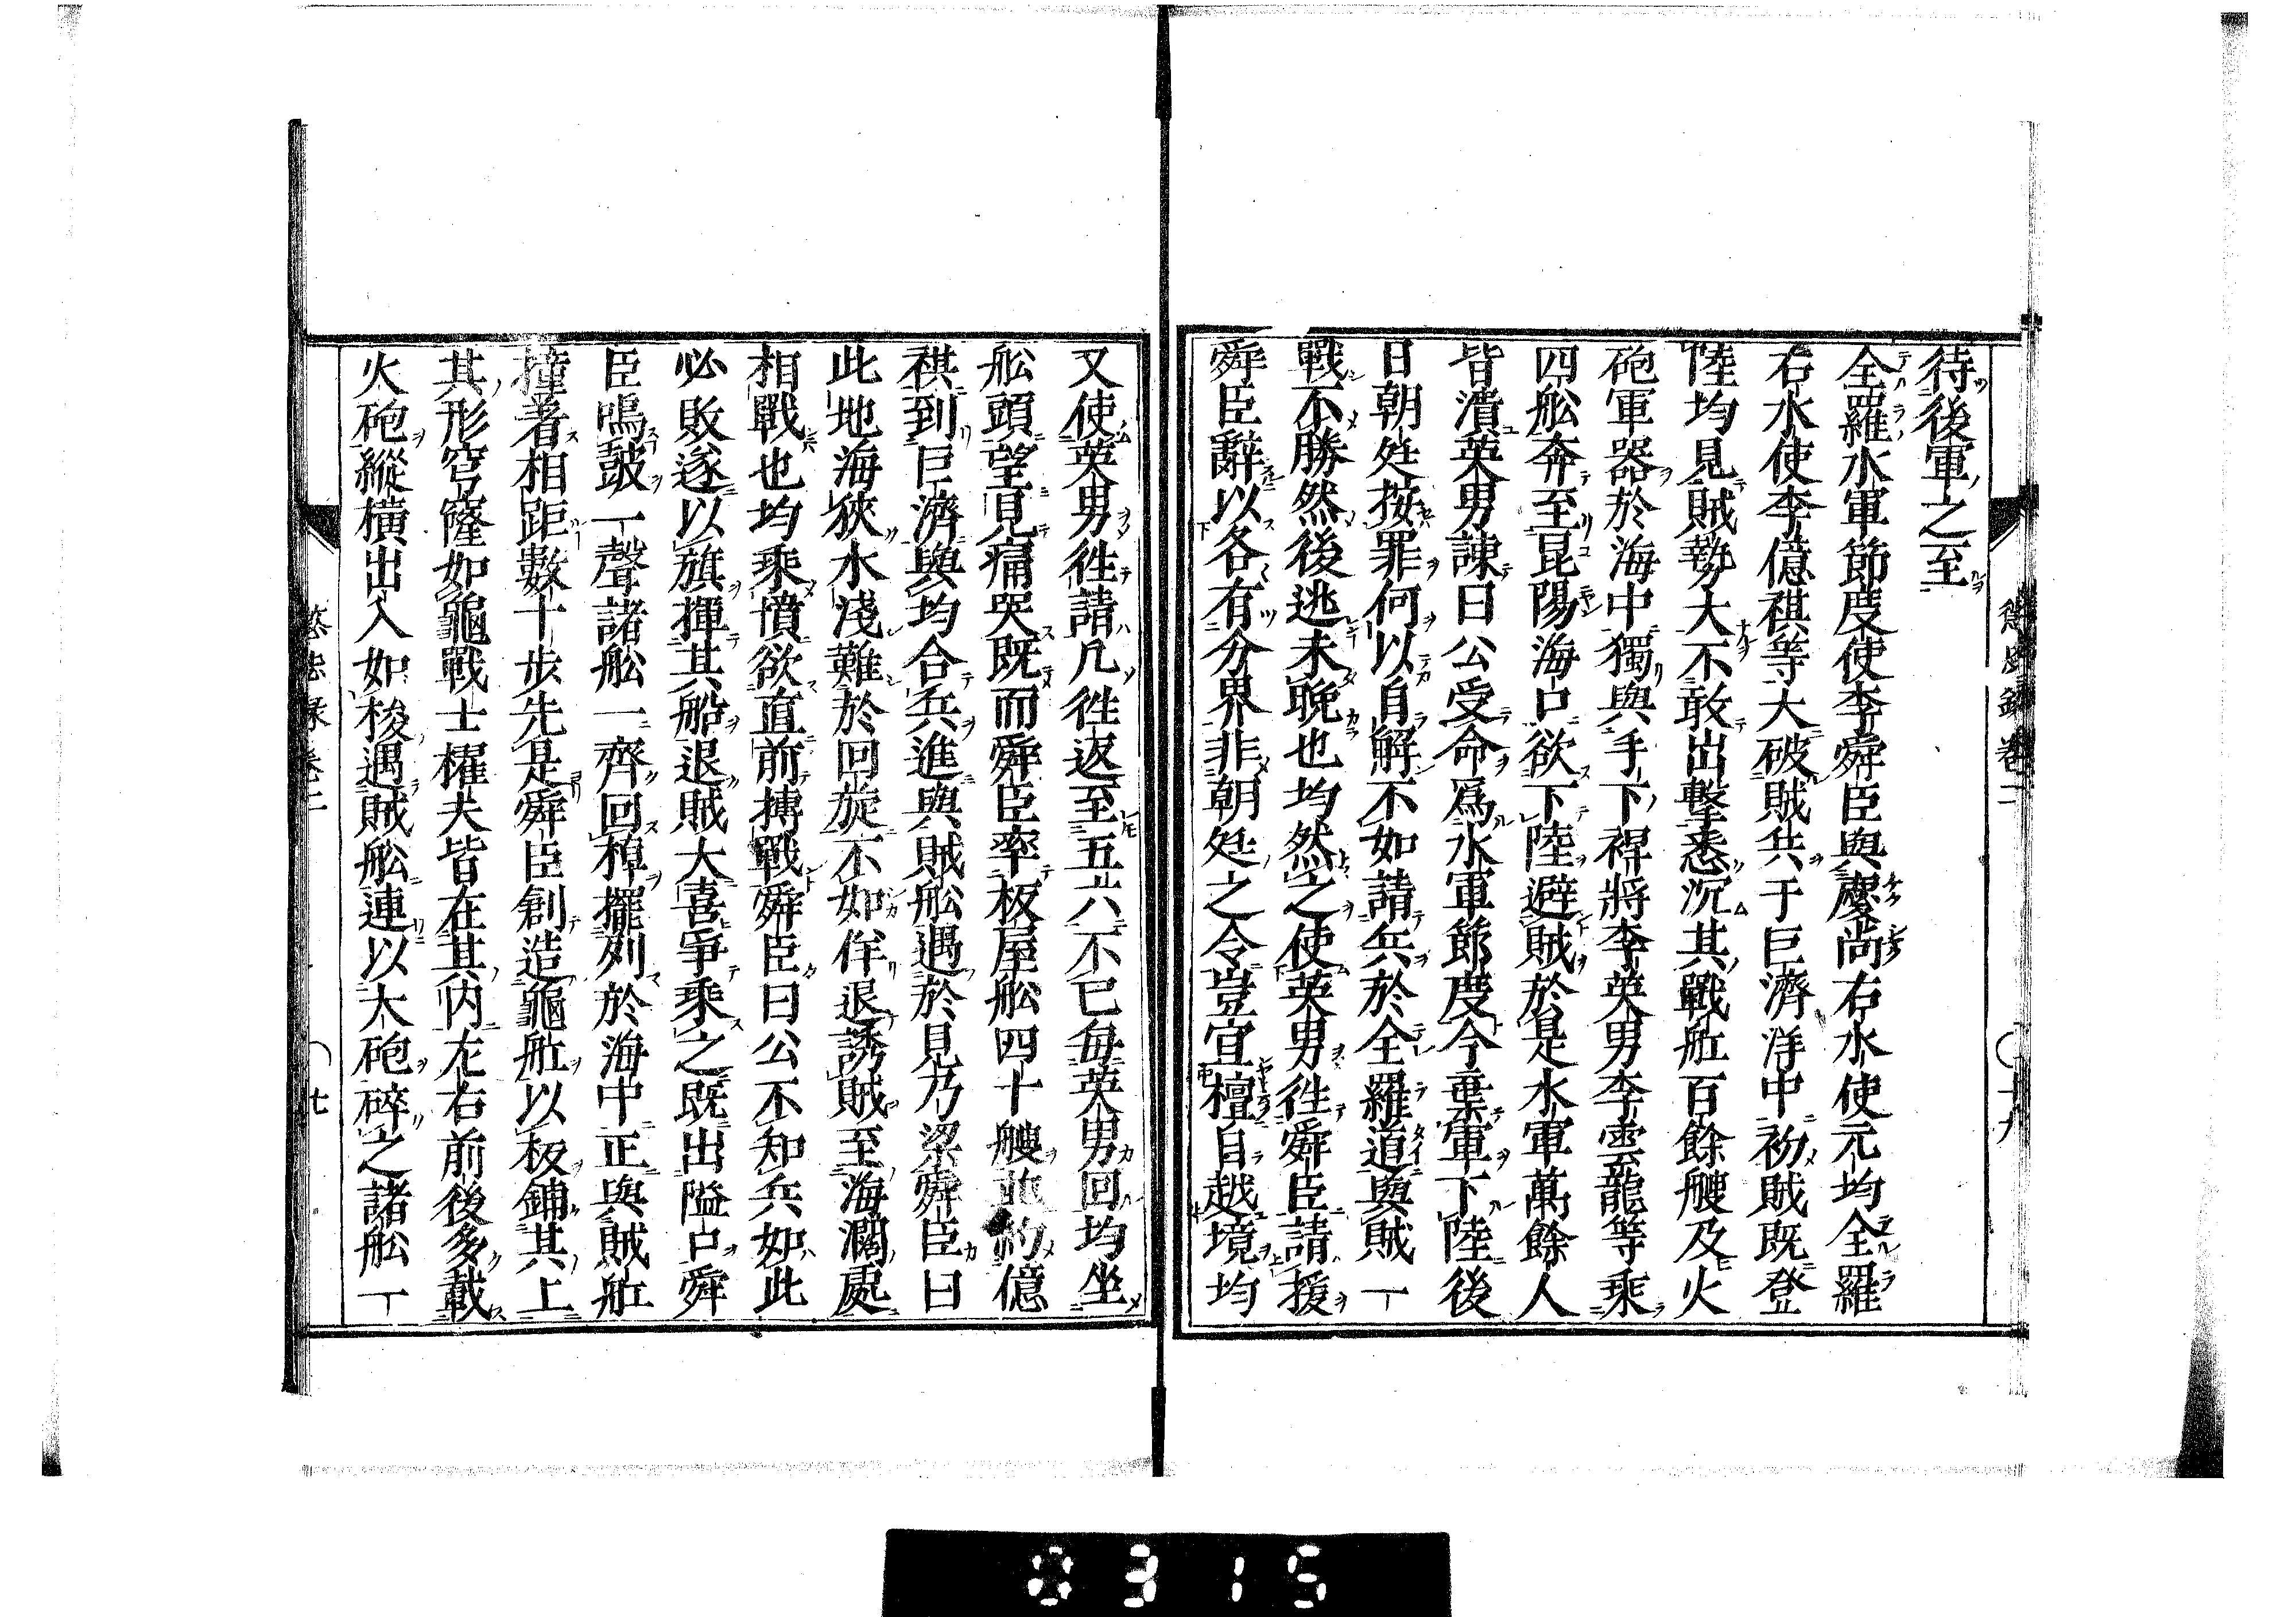 待後軍之至
全羅水軍節度使李舜臣與慶尚右水使元均全羅
右水使李億祺等大破賊兵于巨濟洋中初賊既登
陸均見賊勢大不敢出擊悉沉其戰舩百餘艘及火
砲軍器於海中獨與手下裨將李英男李雲龍等乘
四舩奔至昆陽海口欲下陸避賊於是水軍萬餘人
皆潰英男諫曰公受命爲水軍節度今棄軍下陸後
日朝廷按罪何以自解不如請兵於全羅道與賊一
戰不勝然後逃未晩也均然之使英男徃舜臣請援
舜臣辭以各有分界非朝廷之令豈宜擅自越境均
又使英男徃請凡徃返至五六不已毎英男回均坐
舩頭望見痛哭既而舜臣率板屋舩四十艘並約億
祺到巨濟與均合兵進與賊舩遇於見乃梁舜臣曰
此地海狹水淺難於回旋不如佯退誘賊至海濶處
相戰也均乘憤欲直前搏戰舜臣曰公不知兵如此
必敗遂以旗揮其船退賊大喜爭乘之既出隘口舜
臣鳴皷一聲諸舩一齊回棹擺列於海中正與賊舩
撞著相距數十步先是舜臣創造龜舩以板鋪其上
其形穹窿如龜戰士櫂夫皆在其内左右前後多載
火砲縱橫出入如梭遇賊舩連以大砲碎之諸舩一
懲毖録卷二
十九
0315